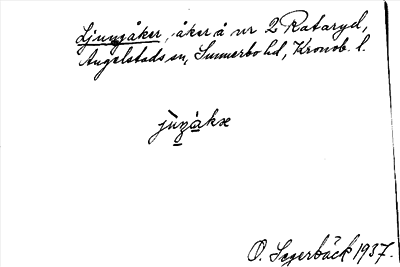 Ljungåker, åker å nr 2 Rataryd,
Angelstads sn, Sunnerbo hd, Kronob. l.
jùŋákæ
O. Segerbäck 1937.